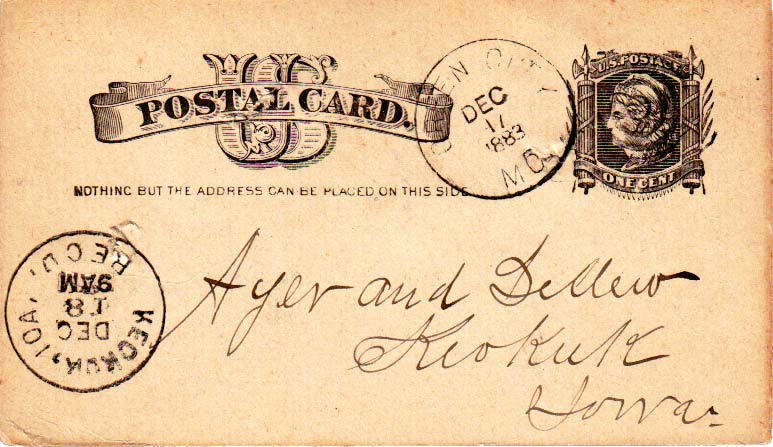 US
POSTAL CARD.
NOTHING BUT THE ADDRESS CAN BE PLACED ON THIS SIDE
CITY
DEC
17
1883
MO.
U.S. POSTAGE
ONE CENT
REC'D.
9AM
18
DEC
KEOKUK, IOA.
Ayer and
Keokuk
Iowa.